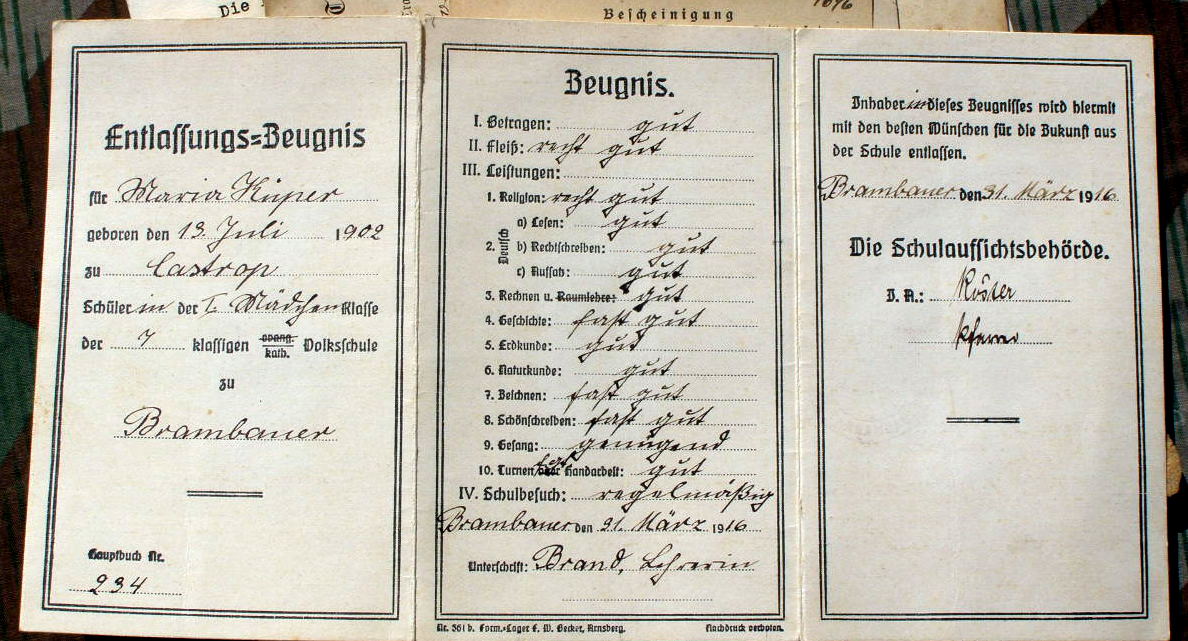 Die
Bescheinigung
Entlassungs-Zeugnis
für Maria Küper
geboren den 13. Juli 1902
zu Castrop
Schüler in der I. Mädchen Klasse
der 7 klassigen evang. kath. Volksschule
zu
Brambauer
Hauptbuch Nr.
234
Zeugnis.
I. Betragen: gut
II. Fleiß: recht gut
III. Leistungen:
1. Religion: recht gut
2. Deutsch
a) Lesen: gut
b) Rechtschreiben: gut
c) Aufsatz: gut
3. Rechnen u. Raumlehre: gut
4. Geschichte: fast gut
5. Erdkunde: gut
6. Naturkunde: gut
7. Zeichnen: fast gut
8. Schönschreiben: fast gut
9. Gesang: genügend
10. Turnen Handarbeit: gut
IV. Schulbesuch: regelmäßig
Brambauer den 31. März 1916
Unterschrift: Brand, Lehrerin
Nr. 361 b. Form.-Lager F. W. Becker, Arnsberg. Nachdruck verboten.
Inhaberin dieses Zeugnisses wird hiermit
mit den besten Wünschen für die Zukunft aus
der Schule entlassen.
Brambauer den 31. März 1916
Die Schulaufsichtsbehörde.
I. A.: Köster
Pfarrer